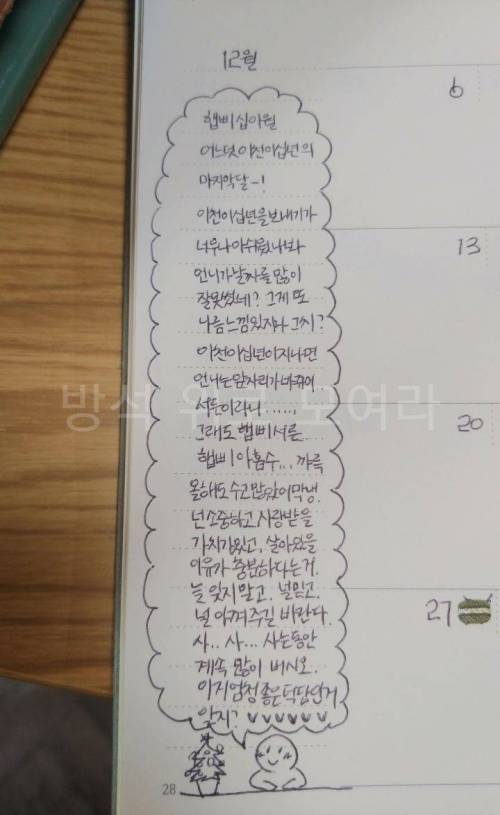 12월
6
햅삐 십이월
어느덧 이천이십년의
마지막달~!
이천이십년을 보내기가
너무나 아쉬웠나봐
언니가 날짜를 많이
잘못썼네? 그게 또
나름 느낌있지 그치?
이천이십년이 지나면
언니는 앞자리가 바뀌어
서른이라니 .....
그래도 햅삐 서른
햅삐 아홉수... 까륵
올해도 수고 많았어 막냉.
넌 소중하고 사랑받을
가치가있고, 살아있을
이유가 충분하다는거.
늘 잊지말고. 널 믿고.
널 아껴주길 바란다.
사.. 사... 사는동안
계속 많이 버시오.
이거 엄청 좋은 덕담인거
알지?
13
20
27
28
방석 위로 모여라